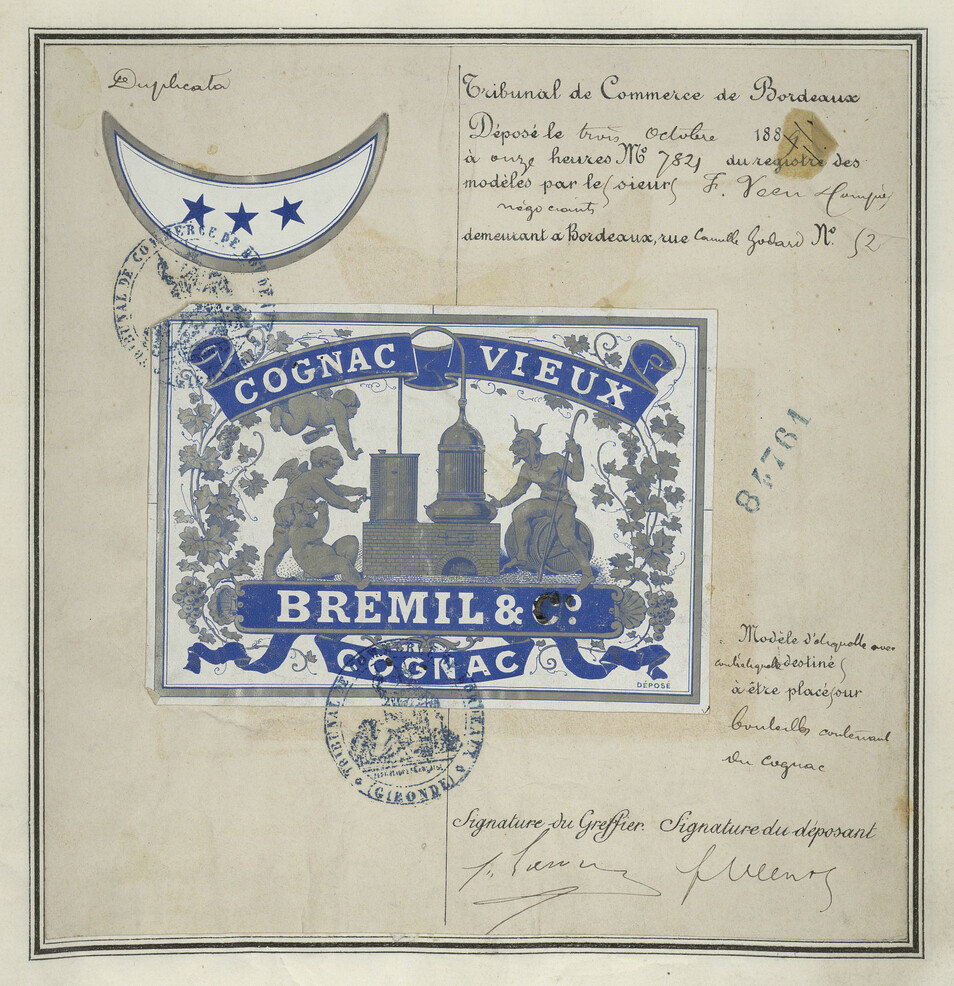 Duplicata
Tribunal de Commerce de Bordeaux
Déposé le trois Octobre 188
à onze heures No 7821 du registre des
modèles par le sieur F. Veen & Compie
négociants
demeurant à Bordeaux, rue Camille Godard No. 52
TRIBUNAL DE COMMERCE DE BORDEAUX
COGNAC VIEUX
84761
BREMIL & Co.
COGNAC
DÉPOSÉ
Modèle d'étiquette avec
contre étiquette destiné
à être placé sur
bouteilles contenant
du cognac
TRIBUNAL DE COMMERCE DE BORDEAUX
(GIRONDE)
Signature du Greffier. Signature du déposant